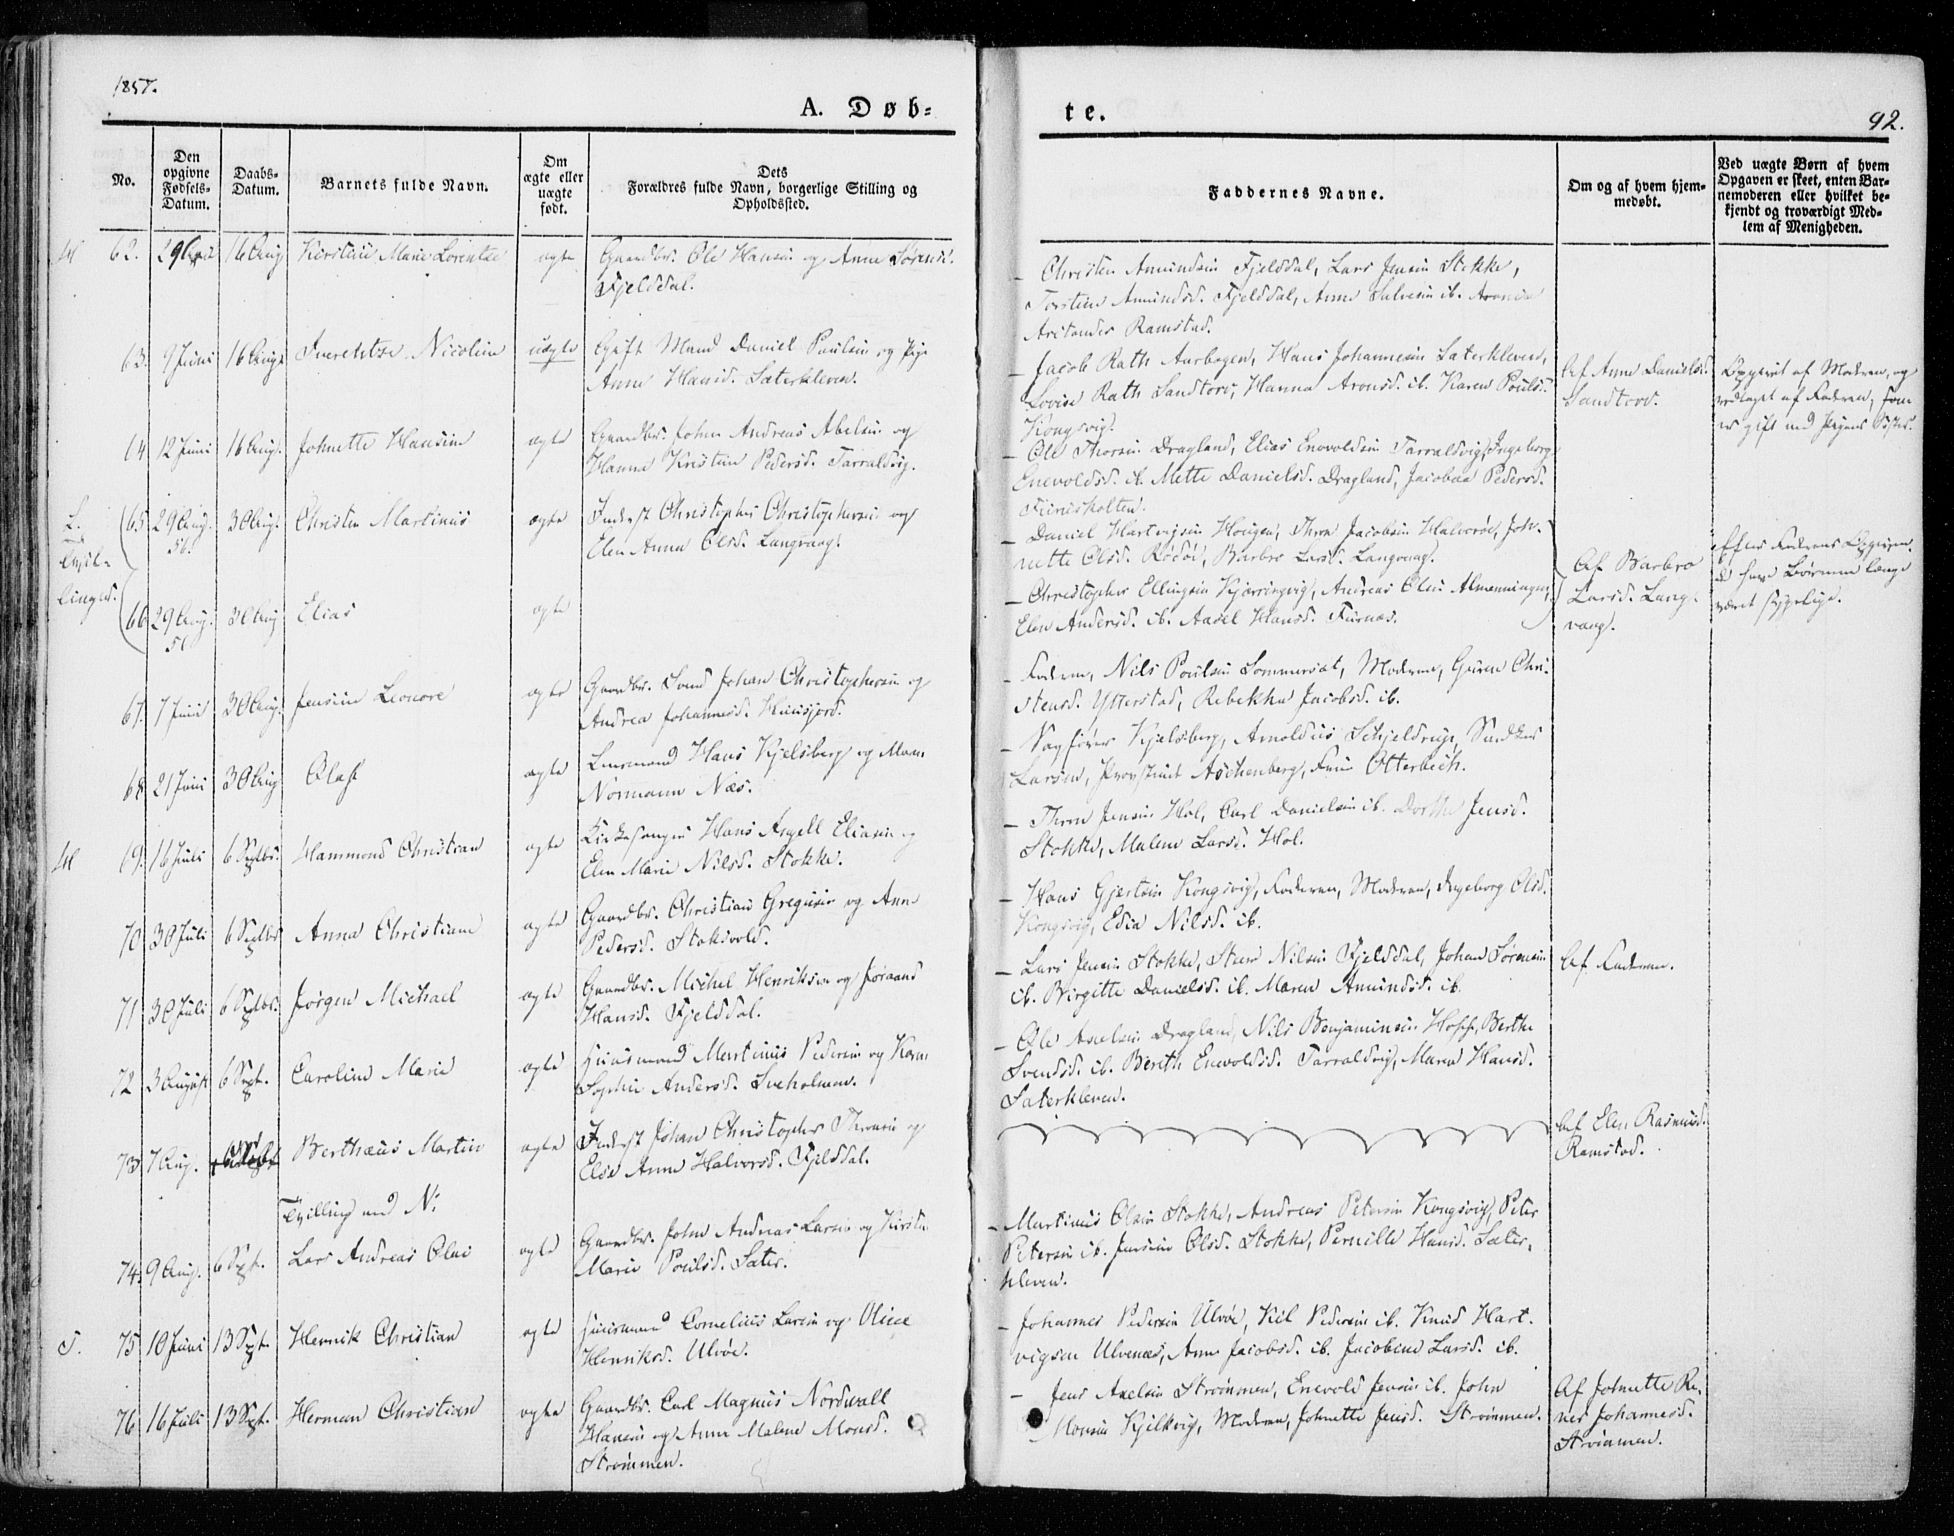 1857.
A. Døb=
te.
92.
No.
Den
opgivne
Fødsels-
Datum.
Daabs-
Datum.
Barnets fulde Navn.
Om
ægte eller
uægte
født.
Dets
Forældres fulde Navn, borgerlige Stilling og
Opholdssted.
Faddernes Navne.
Om og af hvem hjem-
medøbt.
Ved uægte Børn af hvem
Opgaven er skeet, enten Bar-
nemoderen eller hvilket be-
kjendt og troværdigt Med-
lem af Menigheden.
62. 16 Aug Marie Lorentze ægte Gaardbr. Ole Hansen og Anne Sørensd.
Fjelddal.
Christen Amundsen Fjelddal, Lars Jensen Stokke,
Torsten Amundsd. Fjelddal, Anne ib.
Ramstad.
63. 9 Juni 16 Aug. Nicoline uægte Gift Mand Daniel Poulsen og Pige
Anne Hansd. Sæterkleven.
Jacob Rath Aarbogen, Hans Johannesen Sæterkleven,
Lovise Rath Sandtorv, Hanna Aronsd. ib. Karen Poulsd.
Kongsvig.
Af Anne Danielsd.
Sandtorv.
Opgivet af Moderen, og
vedtaget af Faderen, som
er gift med Pigens Søster.
64 12 Juni 16 Aug. Johnette Hansine ægte Gaardbr. John Andreas Abelsen og
Hanna Kristine Pedersd. Tarraldvig.
Ole Thorsen Dragland, Elias Enevoldsen Tarraldvig, Ingeborg
Enevoldsd. ib. Mette Danielsd. Dragland, Jacobaa Pedersd.
65 29 Aug. 56. 30 Aug. Christen Martinus ægte Inderst Christopher Christophersen og
Elen Anna Olsd. Langvaag.
Daniel Hartvigsen Hougen, Thore Jacobsen Halvorøe, John-
nette Olsd. Rødøe, Barbro Larsd. Langvaag.
66 29 Aug. 56 30 Aug Elias ægte
Christopher Ellingsen Kjærringvig, Andreas Olsen Almenningen,
Elen Andersd. ib. Aasel Hansd. Furnæs.
Af Barbro
Larsd. Lang-
vaag.
Efter Faderens
have Børnene længe
været sygelige.
67. 7 Juni 30 Aug. Jensine Leonore ægte Gaardbr. Svend Johan Christophersen og
Andrea Johannesd.
Faderen, Nils Poulsen Sommersæt, Moderen, Guren Chri-
stensd. Ytterstad, Rebekka Jacobsd. ib.
68 21 Juni 30 Aug Olaf ægte Lensmand Hans Kjelsberg og Maren
Normann Næs.
Sagfører Kjelsberg, Arnoldus Schjeldrup,
Larsen, Provstinde Aschenberg, Fru Otterbech.
69. 16 Juli 6 Septbr. Hammond Christian ægte Kirkesanger Hans Angell Eliasen og
Elen Marie Nilsd. Stokke.
Thore Jensen Hol, Carl Danielsen ib. Dorthe Jensd.
Stokke, Malene Larsd. Hol.
70 30 Juli 6 Septbr Anna Christiane ægte Gaardbr. Christian Gregusen og Anne
Pedersd. Stoksvold.
Hans Gjertsen Kongsvig, Faderen, Moderen, Ingeborg Olsd.
Kongsvig, Edia Nilsd. ib.
71 30 Juli 6 Septbr. Jørgen Michael ægte Gaardbr. Michel Henriksen og Jøraand
Hansd. Fjelddal.
Lars Jensen Stokke, Steen Nilsen Fjelddal, Johan Sørensen
ib. Birgitte Danielsd. ib. Maren Amundsd. ib.
Af Faderen.
72 3 August 6 Sept. Caroline Marie ægte Huusmand Martinus Pedersen og Karen
Sophie Andersd. Sveholmen.
Ole Axelsen Dragland, Nils Benjaminsen Hoff, Berthe
Svendsd. ib. Bereth Enevoldsd. Tarraldvig, Maren Hansd.
Sæterkleven.
73 7 Aug. Berthæus Martin ægte Inderst Johan Christopher Thoresen og
Else Anne Halvorsd. Fjelddal.
Af Elen Rasmusd.
Ramstad.
Tvilling med N:
74. 9 Aug. 6 Sept. Lars Andreas Olai ægte Gaardbr. John Andreas Larsen og Kirsten
Marie Poulsd. Sæter.
Martinus Olsen Stokke, Andreas Petersen Kongsvig, Peter
Petersen ib. Jensine Olsd. Stokke, Pernille Hansd. Sæter-
kleven.
75 10 Juni 13 Sept. Henrik Christian ægte Huusmand Cornelius Larsen og Oline
Henriksd. Ulvøe.
Johannes Pedersen Ulvøe, Kiil Pedersen ib. Knud Hart-
vigsen Ulvenæs, Anne Jacobsd. ib. Jacobine Larsd. ib.
76 16 Juli 13 Sept. Herman Christian ægte Gaardbr. Carl Magnus Nordwall
Hansen og Anne Malene Monsd.
Strømmen.
Jens Axelsen Strømmen, Enevold Jensen ib. John
Monsen Kjilkvig, Moderen, Johnette Jensd. Strømmen.
Af Johnette Re-
Johannesd.
Strømmen.